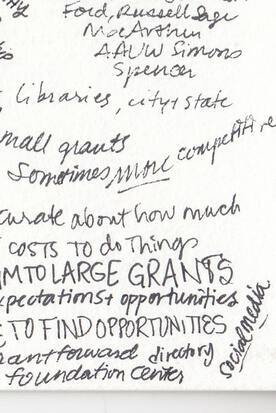 Ford, Russell Sage
MacArthur
AAUW Simons
Spencer
libraries, city + state
mall grants
Sometimes more competitive
curate about how much
costs to do things
IM TO LARGE GRANTS
xpectations + opportunities
E TO FIND OPPORTUNITIES
rantforward directory
foundation center
social media